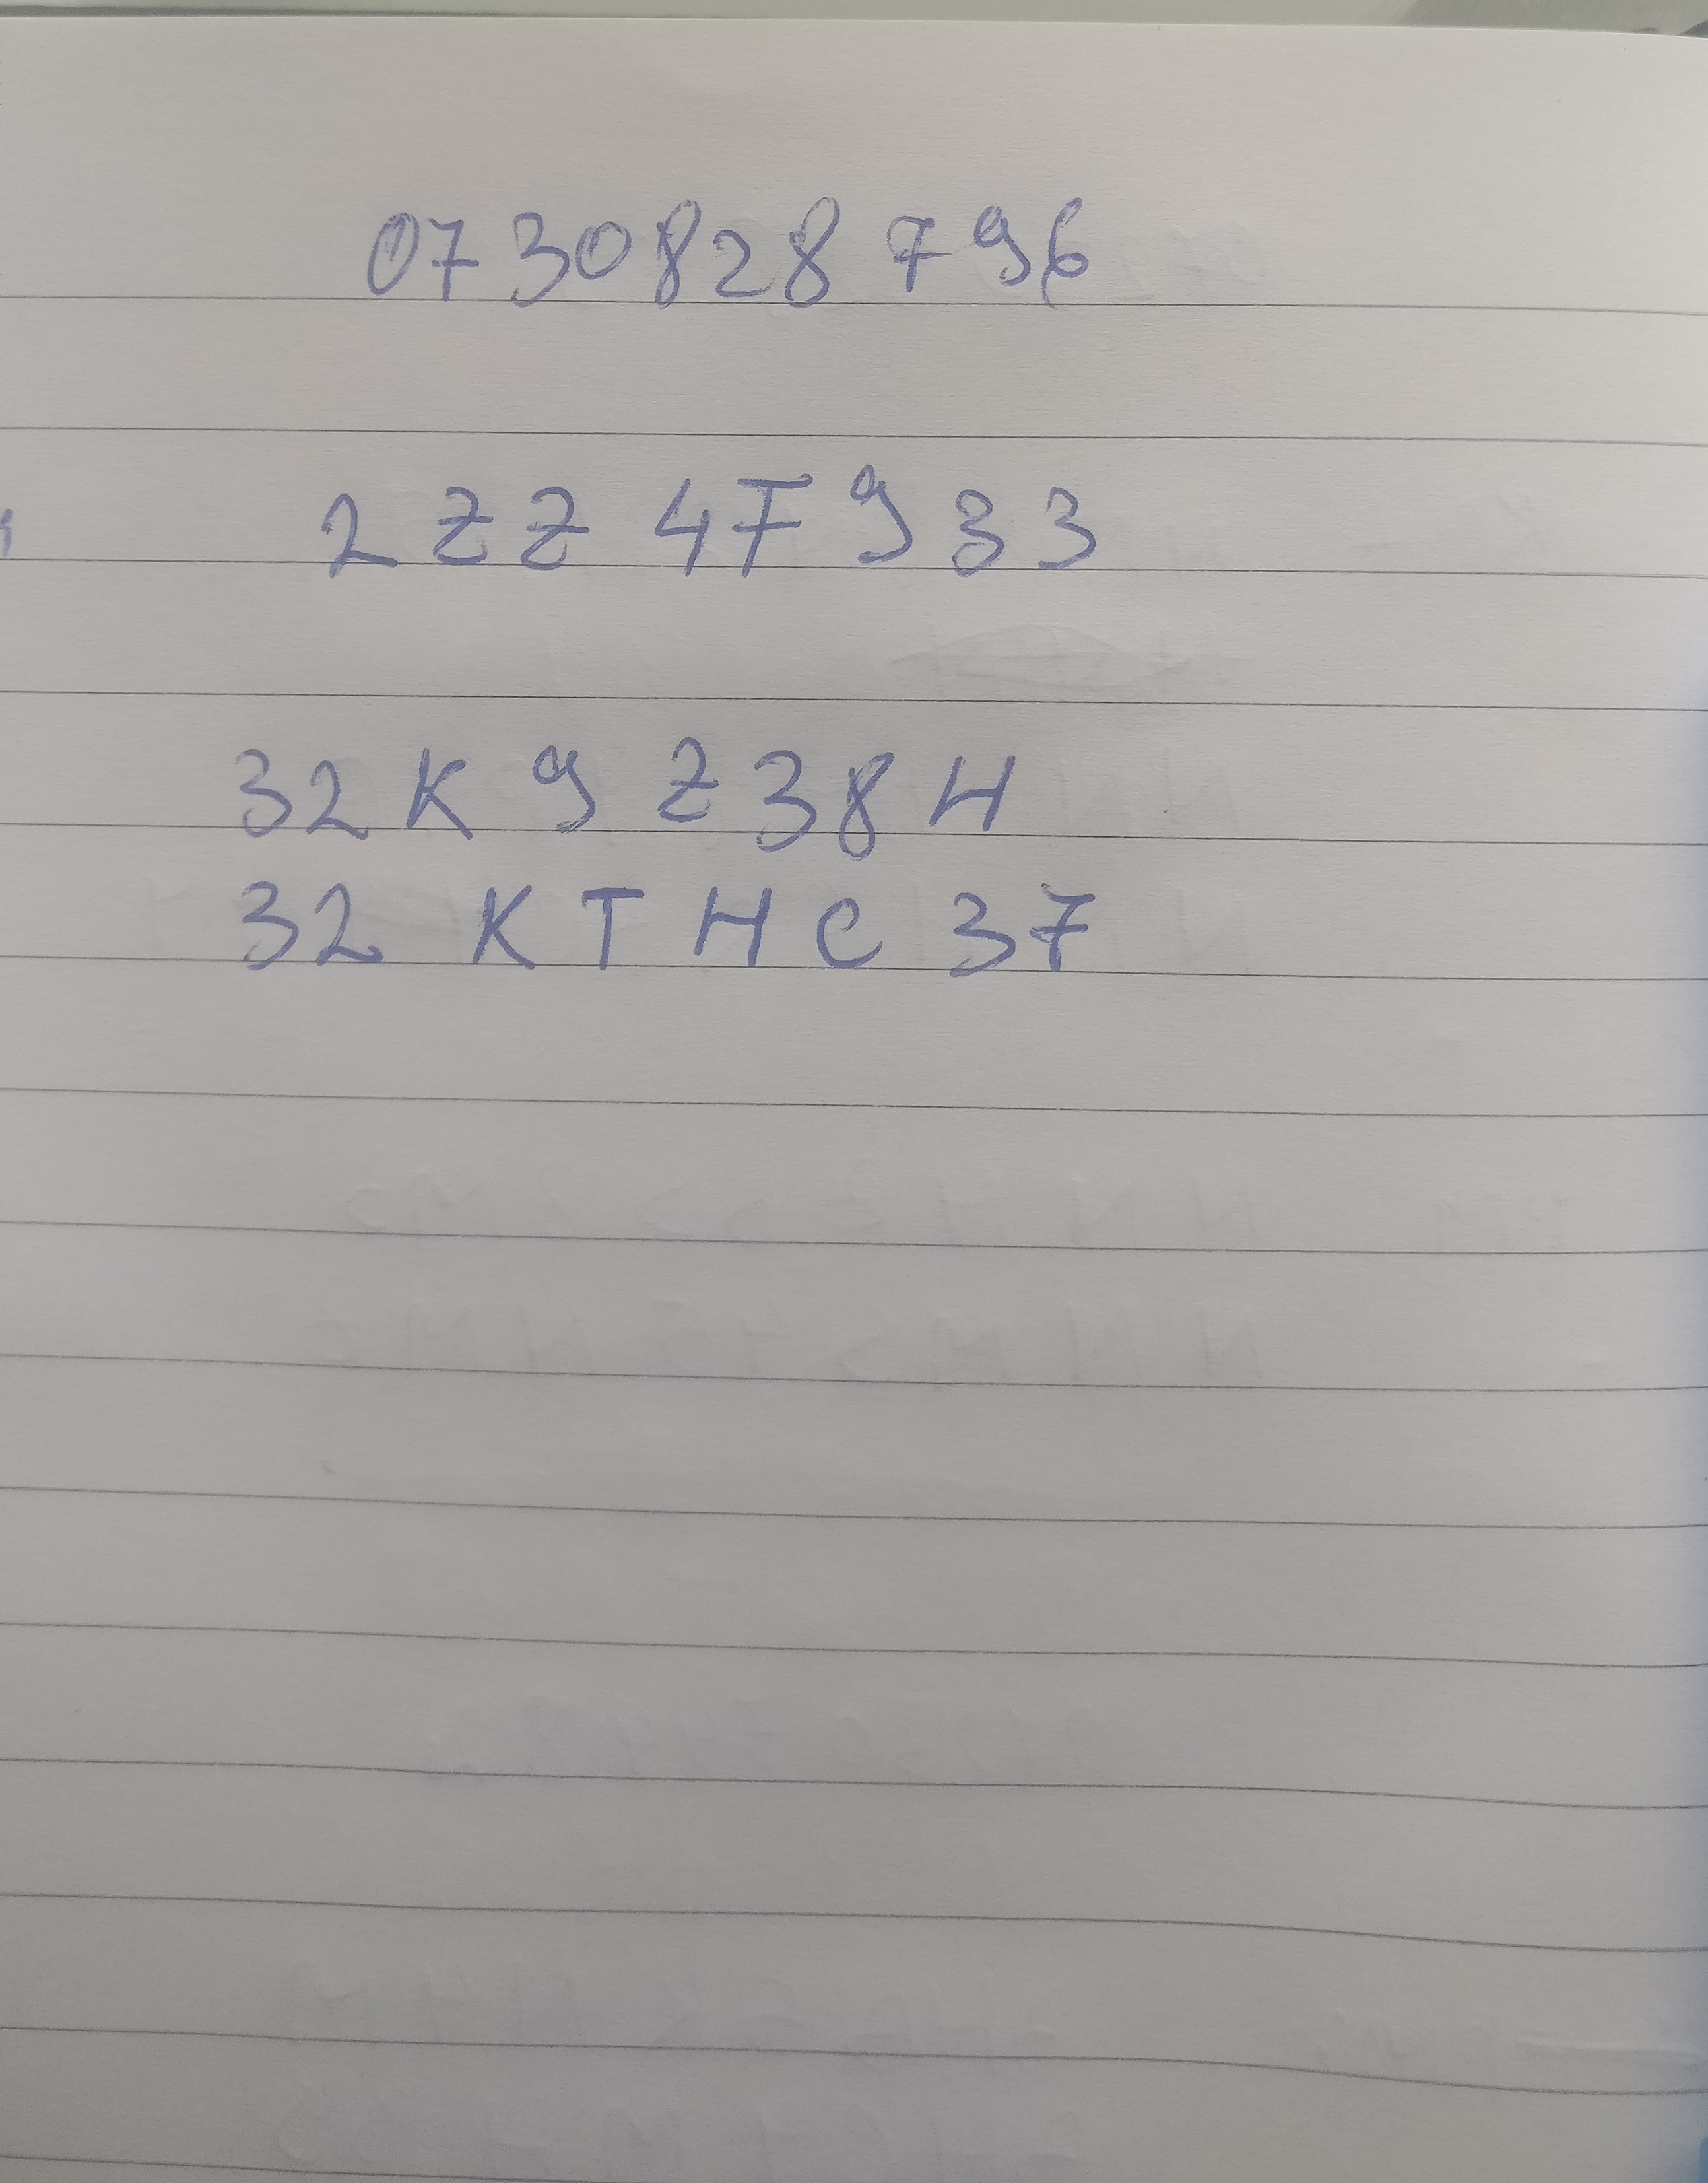 0730828796
2 Z Z 4 F 9 3 3
32 K 9 Z 3 8 H
32 K T H C 3 7